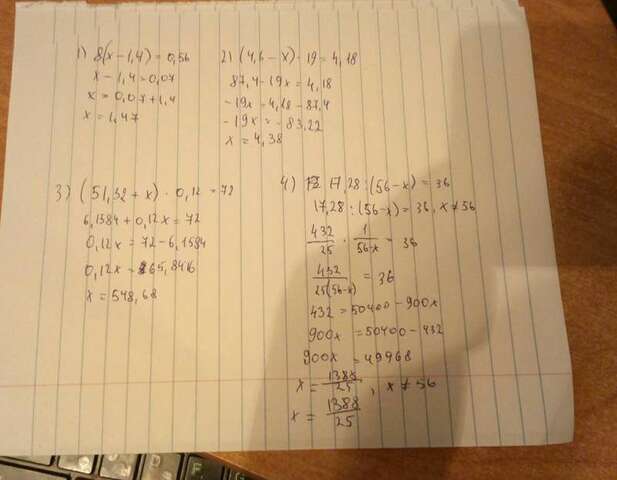 1) 8(x-1,4)=0,56
x-1,4=0,07
x=0,07+1,4
x=1,47
2) (4,6-x)·19=4,18
87,4-19x=4,18
-19x=4,18-87,4
-19x=-83,22
x=4,38
3) (51,32+x)·0,12=72
6,1584+0,12x=72
0,12x=72-6,1584
0,12x=65,8416
x=548,68
4) 17,28:(56-x)=36
17,28:(56-x)=36, x≠56
432/25 · 1/56-x = 36
432/25(56-x) = 36
432=50400-900x
900x=50400-432
900x=49968
x=1388/25, x≠56
x=1388/25
F